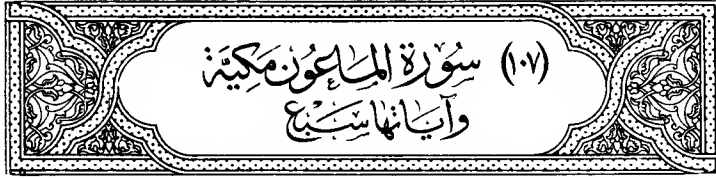 (١٠٧) سُوْرَة المَاعُون مَكِيَّة
وَآيَاتهَا سَبْع